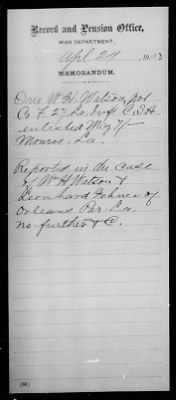 Record and Pension Office,
WAR DEPARTMENT,
Apl 24, 1903
MEMORANDUM.
One W. H. Watson, pvt
Co. F. 27 La. Inft C.S.A.
enlisted
Monroe La.
Reported in the case
of W H Watson &
Leonhard Fehner of
Orleans Par. La.
no further &C.
(86)